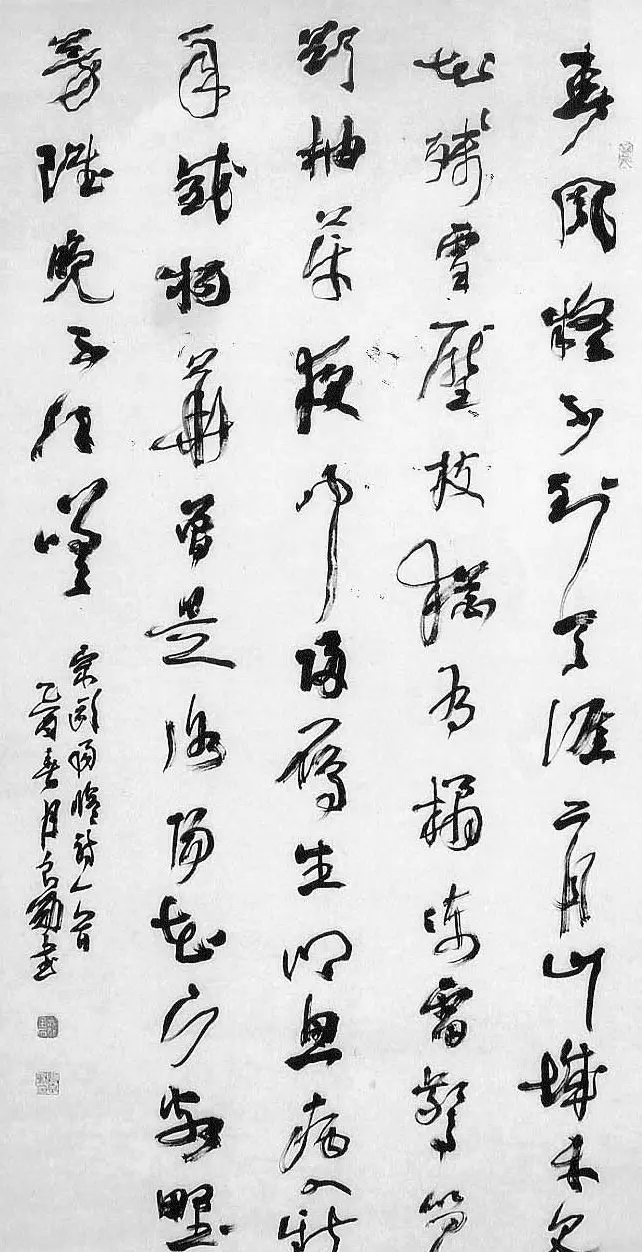 春風疑不到天涯二月山城未見
花殘雪壓枝猶有橘凍雷驚笋
欲抽芽夜聞歸雁生鄉思病入新
年感物華曾是洛陽花下客野
芳雖晚不須嗟
宋歐陽脩詩一首
乙酉春月書